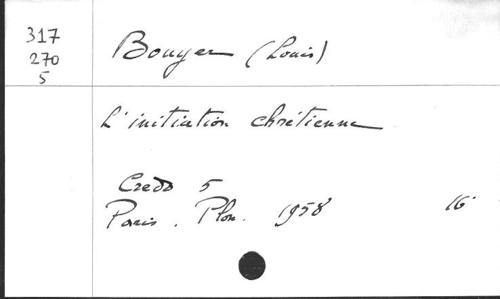 317
270
5
Bouyer (Louis)
L'initiation chrétienne
Credo 5
Paris. Plon. 1958 16°